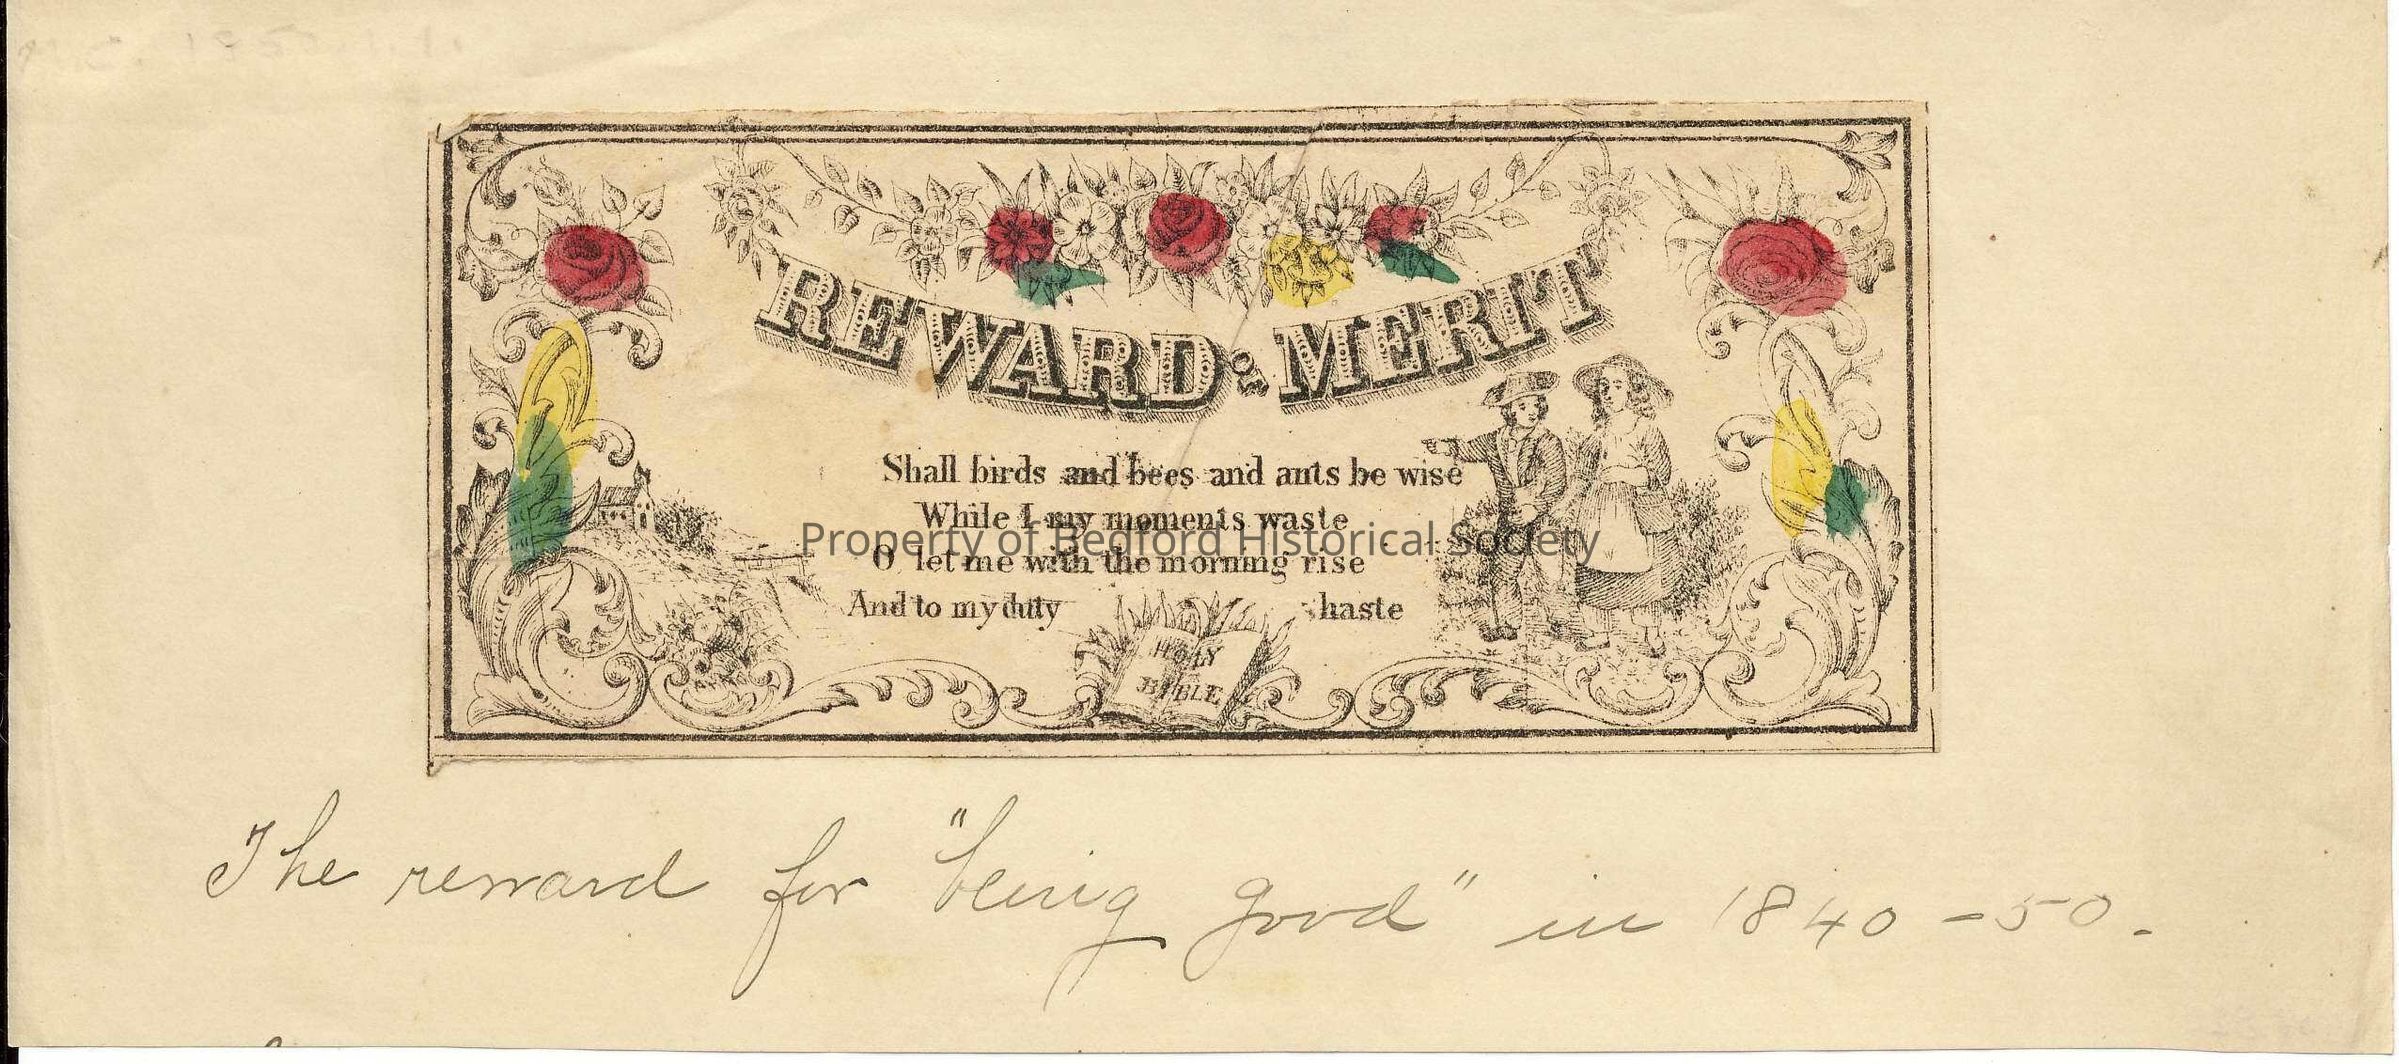 REWARD OF MERIT
Shall birds and bees and ants be wise
While I my moments waste
O let me with the morning rise
And to my duty haste
HOLY
BIBLE
Property of Bedford Historical Society
The reward for "being good" in 1840-50.